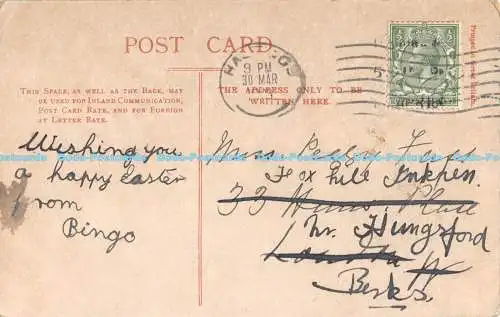 POST CARD.
THIS SPACE, AS WELL AS THE BACK, MAY
BE USED FOR INLAND COMMUNICATION,
POST CARD RATE, AND FOR FOREIGN
AT LETTER RATE.
THE ADDRESS ONLY TO BE
WRITTEN HERE.
HASTINGS
9 PM
30 MAR
Wishing you
a happy Easter
from
Bingo
Miss
Fox Hill Inkpen
33 Place
Nr. Hungsford
London W
Berks.